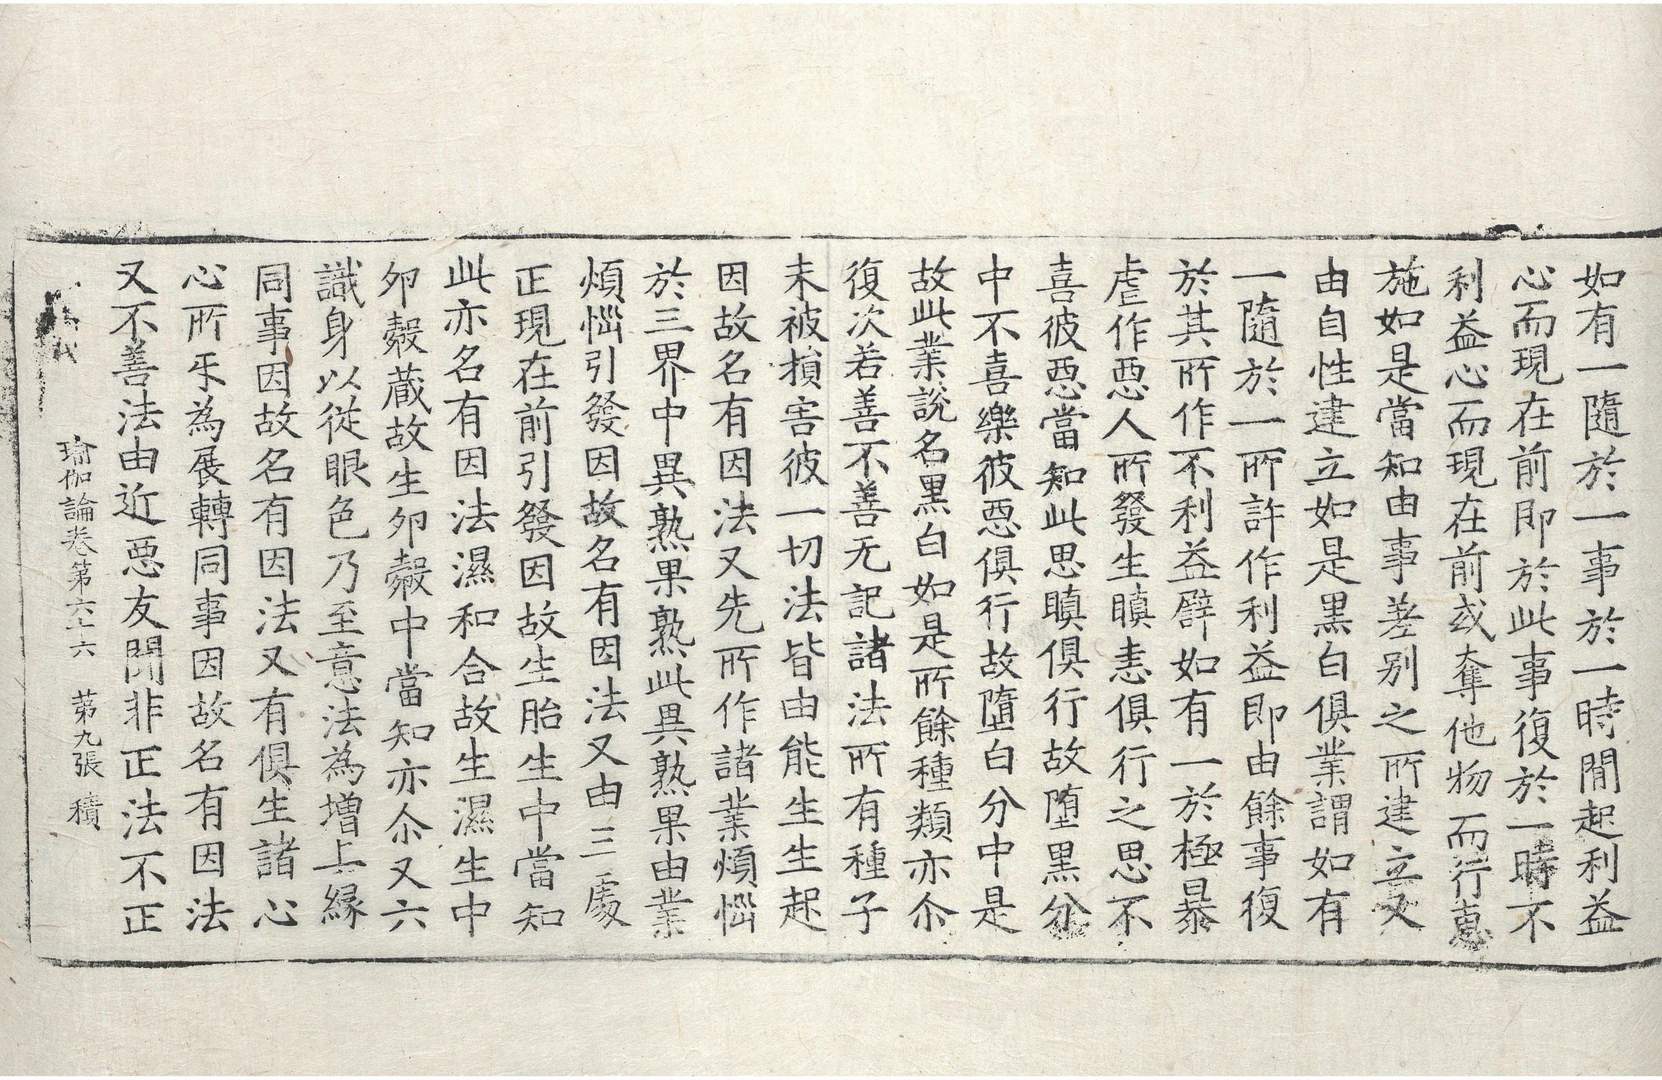 如有一隨於一事於一時間起利益
心而現在前即於此事復於一時不
利益心而現在前或奪他物而行惠
施如是當知由事差別之所建立又
由自性建立如是黑白俱業謂如有
一隨於一所許作利益即由餘事復
於其所作不利益譬如有一於極暴
虐作惡人所發生瞋恚俱行之思不
喜彼惡當知此思瞋俱行故墮黑分
中不喜樂彼惡俱行故墮白分中是
故此業說名黑白如是所餘種類亦尒
復次若善不善无記諸法所有種子
未被損害彼一切法皆由能生生起
因故名有因法又先所作諸業煩惱
於三界中異熟果熟此異熟果由業
煩惱引發因故名有因法又由三處
正現在前引發因故生胎生中當知
此亦名有因法濕和合故生濕生中
卵㲉藏故生卵㲉中當知亦尒又六
識身以從眼色乃至意法為增上緣
同事因故名有因法又有俱生諸心
心所㸦為展轉同事因故名有因法
又不善法由近惡友聞非正法不正
瑜伽論卷第六十六 第九張 積